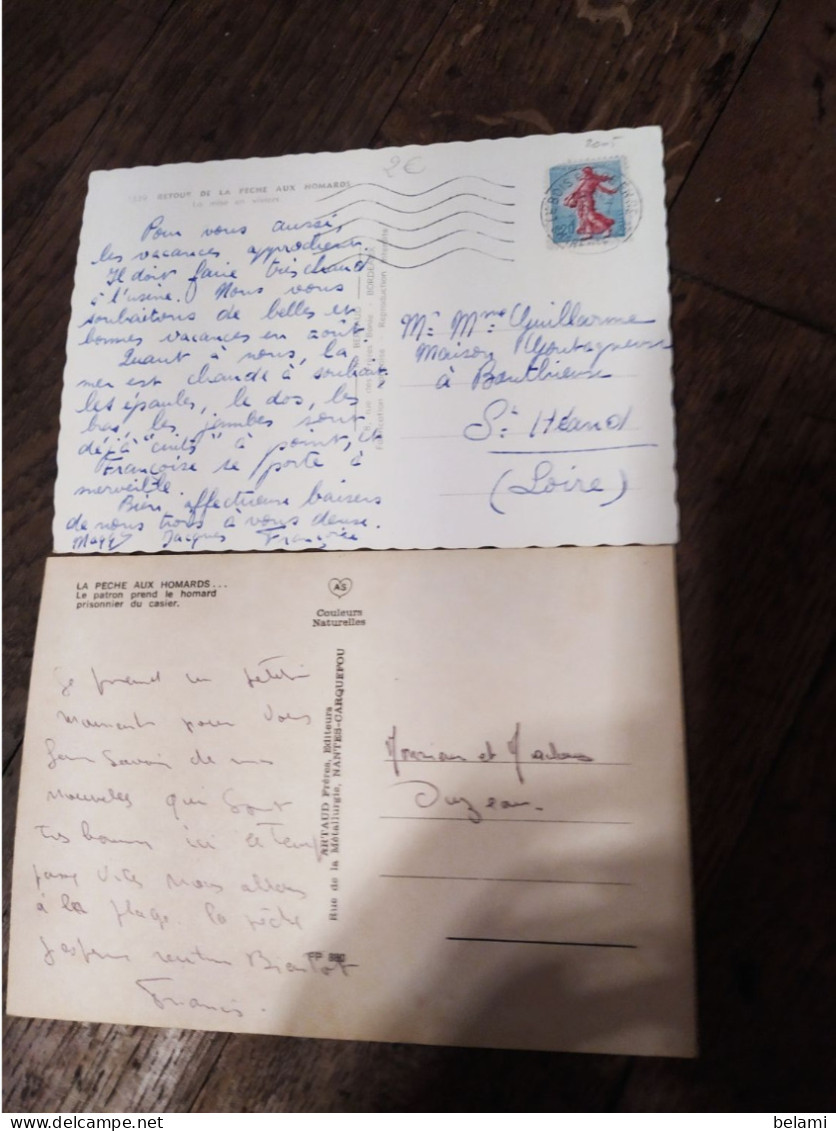 2€
RETOUR DE LA PÊCHE AUX HOMARDS
Pour vous aussi,
les vacances approchent.
Il doit faire très chaud
à l'usine. Nous vous
souhaitons de belles et
bonnes vacances en août
Quant à nous, la
mer est chaude à souhait
les épaules, le dos, les
bras, les jambes sont
déjà "cuits" à point, et
Françoise se porte à
merveille.
Bien affectueux baisers
de nous trois à vous deux.
Maggy Jacques Françoise
BORDEAUX
Reproduction interdite
Mr Mme Guillarme
Maison
à Bouthieure
St Héand
(Loire)
LA PECHE AUX HOMARDS...
Le patron prend le homard
prisonnier du casier.
AS
Couleurs
Naturelles
Je prend un petit
moment pour vous
faire savoir de mes
nouvelles qui sont
très bonnes ici le temp
passe vite nous allons
à la plage. la pêche
j'espère rentrer Bientot
Francis.
ARTAUD Frères, Editeurs
Rue de la Métallurgie, NANTES-CARQUEFOU
Monsieur et Madame
Duzeau.
belami